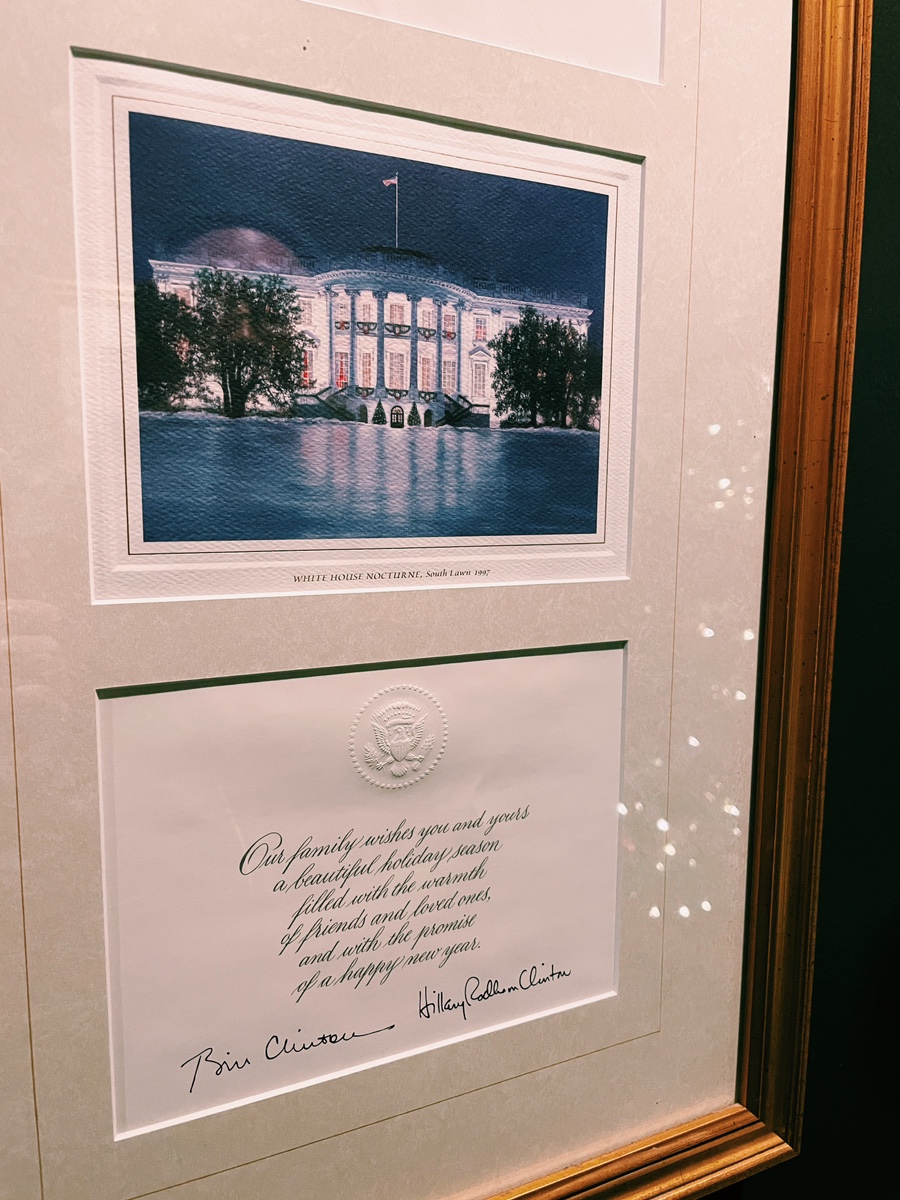 WHITE HOUSE NOCTURNE, South Lawn 1997
Our family wishes you and yours
a beautiful holiday season
filled with the warmth
of friends and loved ones,
and with the promise
of a happy new year.
Bill Clinton Hillary Rodham Clinton